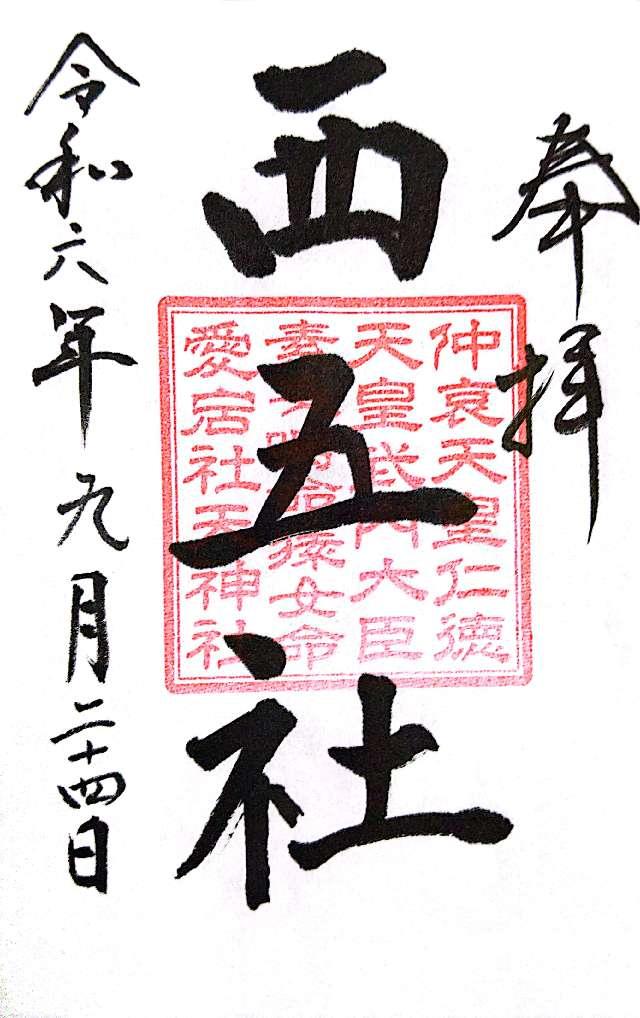 奉拝
西五社
仲哀天皇仁徳
天皇武内大臣
素
猿女命
愛宕社天神社
令和六年九月二十四日